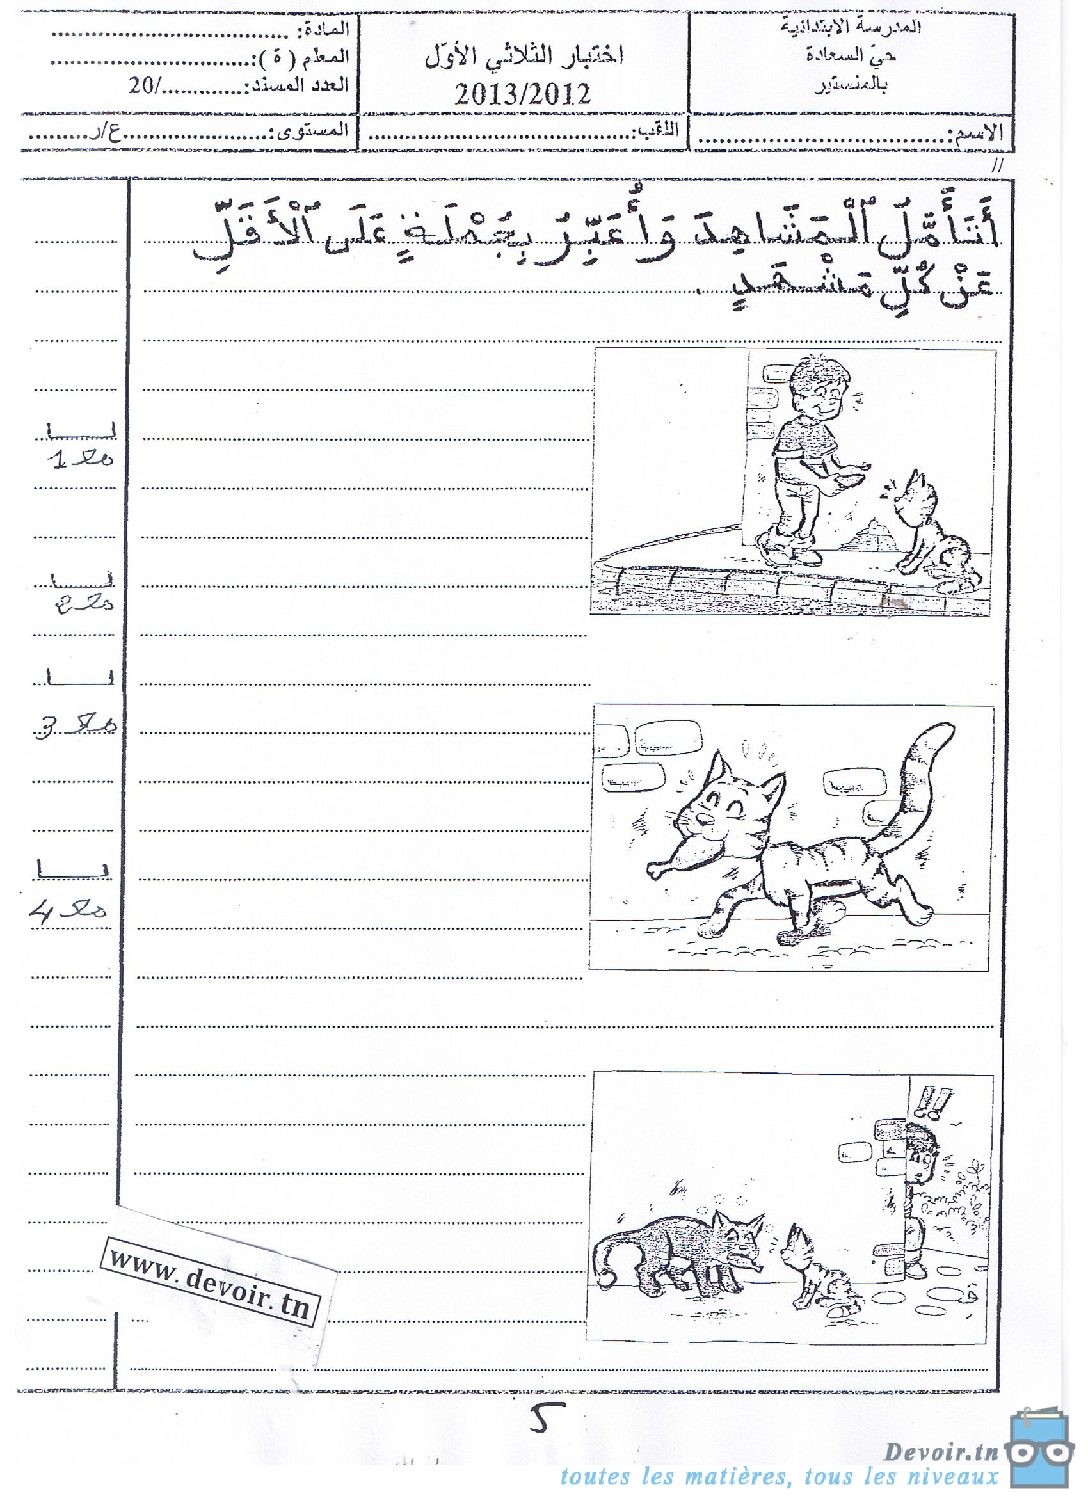 المدرسة الابتدائية
حيّ السعادة
بالمنستير
اختبار الثلاثي الأوّل
2013/2012
المادة: ........................................
المعلم ( ة ):........................................
العدد المسند:............/20
الاسم:........................................
اللقب:........................................
المستوى:........................ع/ر............
//
أَتَأَمَّلُ ٱلْمَشَاهِدَ وَأُعَبِّرُ بِجُمْلَةٍ عَلَى ٱلْأَقَلِّ
عَنْ كُلِّ مَشْهَدٍ .
!!
مع1
مع2
مع3
مع4
www.devoir.tn
5
Devoir.tn
toutes les matières, tous les niveaux